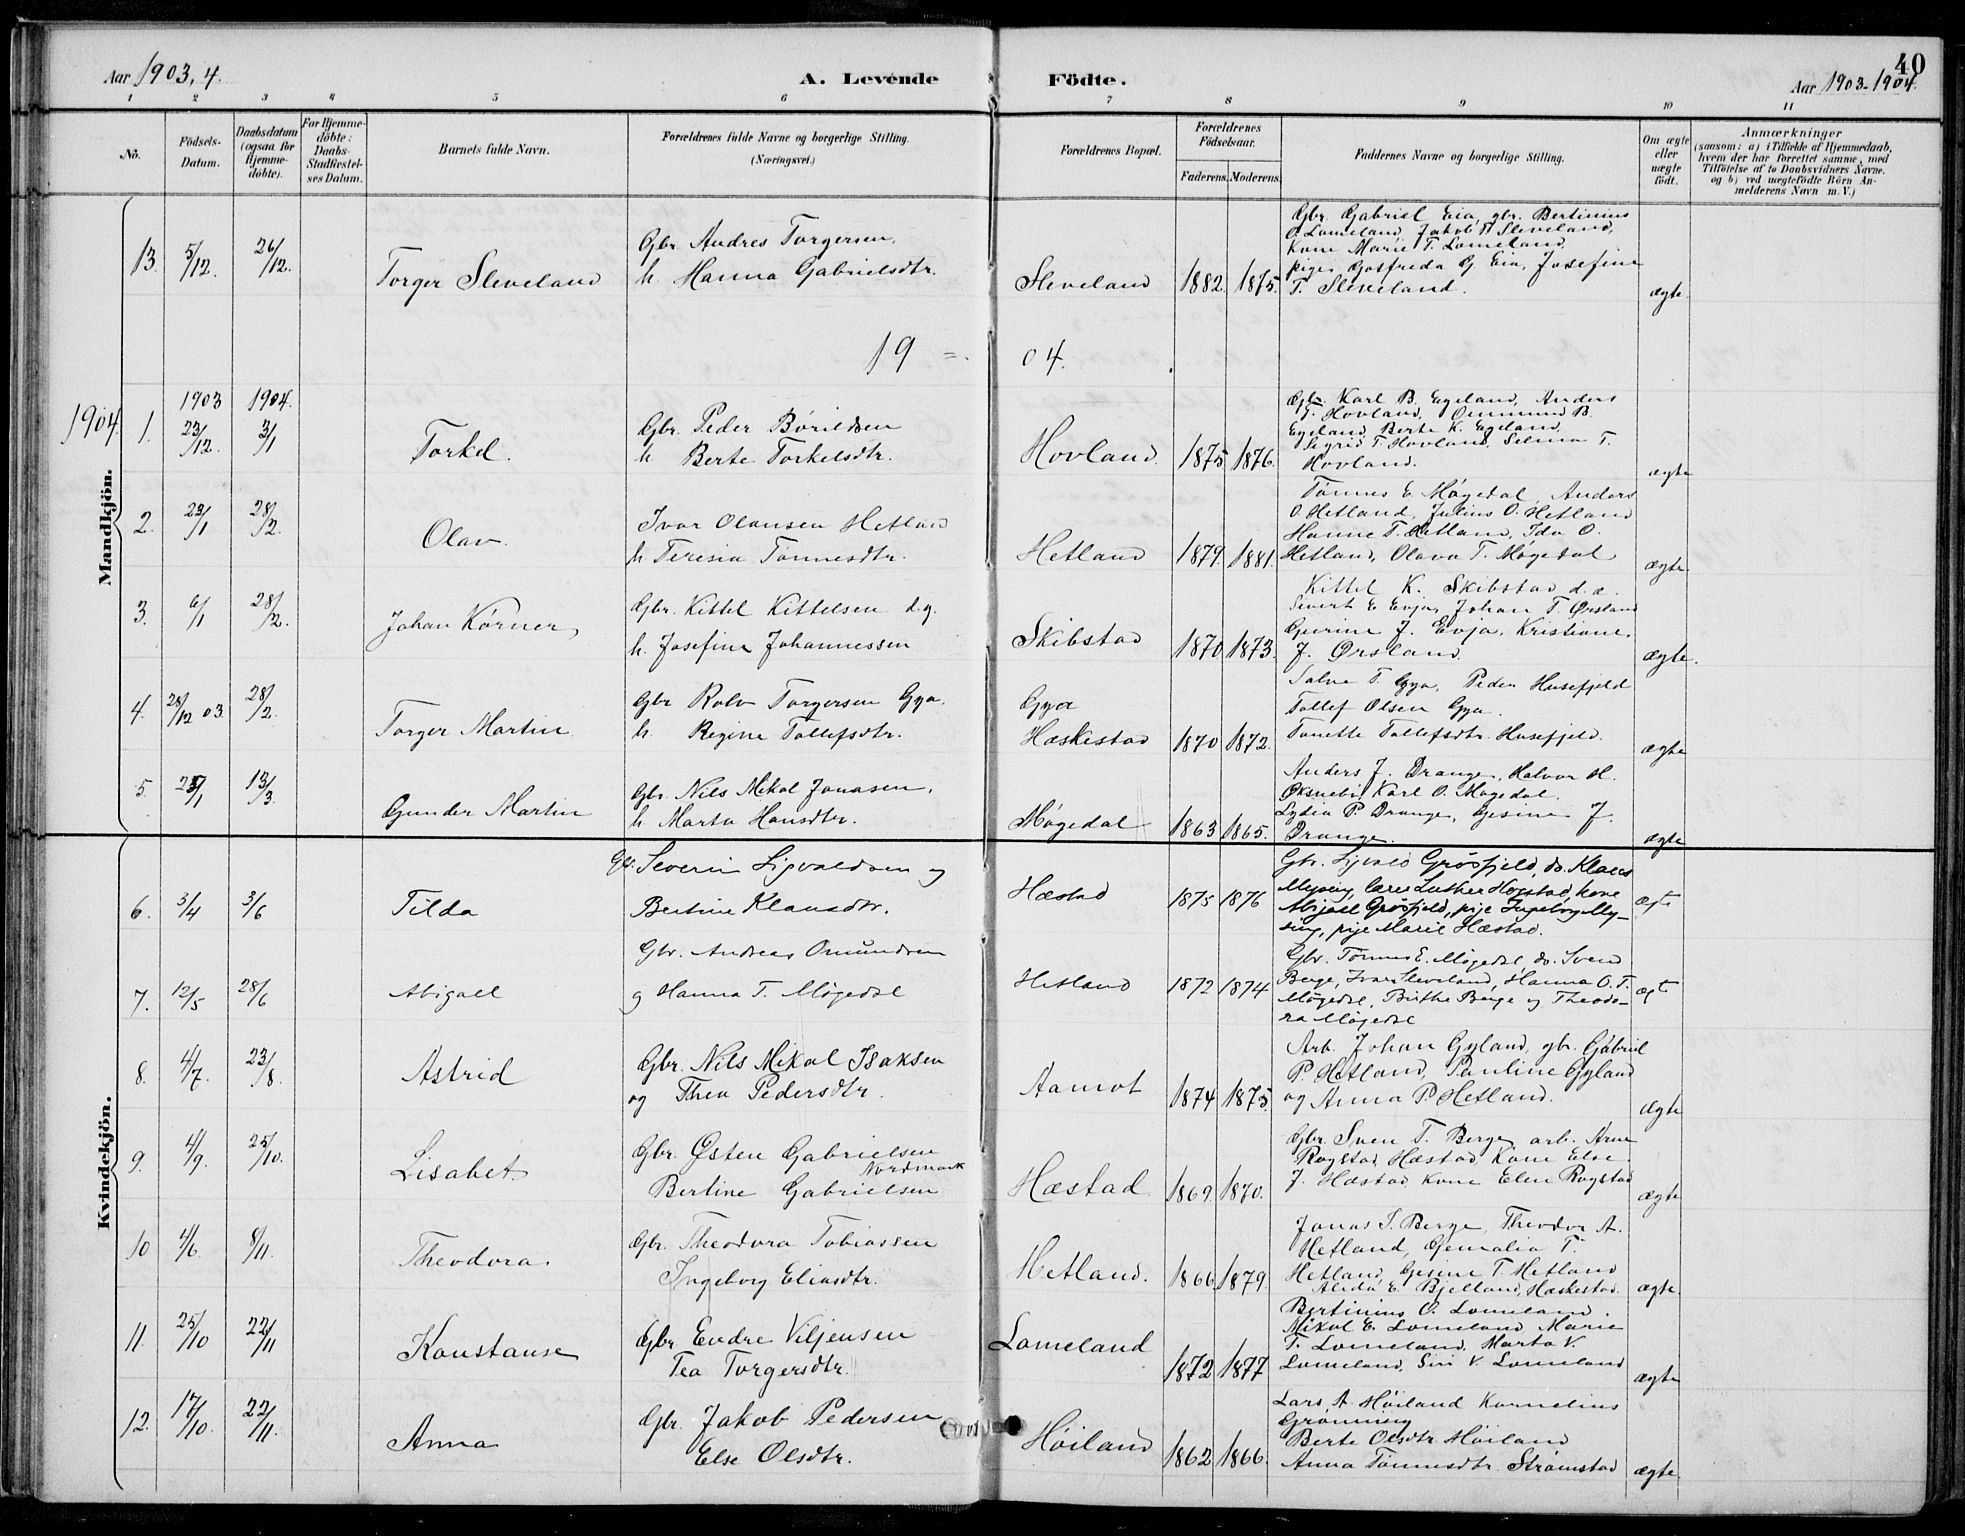 40
Aar 1903, 4.
A. Levende Födte.
Aar 1903-1904.
1 2 3 4 5 6 7 8 9 10 11
No.
Födsels-Datum.
Daabsdatum (ogsaa for Hjemmedöbte).
For Hjemmedöbte: Daabs-Stadfæstelses Datum.
Barnets fulde Navn.
Forældrenes fulde Navne og borgerlige Stilling.
(Næringsvei.)
Forældrenes Bopæl.
Forældrenes Födselsaar.
Faderens. Moderens.
Faddernes Navne og borgerlige Stilling.
Om ægte eller uægte født.
Anmærkninger
(saasom: a) i Tilfælde af Hjemmedaab, hvem der har forrettet samme, med Tilføielse af to Daabsvidners Navne. og b) ved uægtefödte Börn Anmelderens Navn m. V.)
13. 5/12. 26/12. Torger Sleveland
Gbr. Andres Torgersen,
h. Hanna Gabrielsdtr.
Sleveland 1882. 1875.
Gbr. Gabriel Eia, gbr. Bertinius
O. Lomeland, Jakob T. Sleveland,
Kone Marie T. Lomeland,
piger Gosfreda G. Eia, Josefine
T. Sleveland.
ægte
19 = 04.
1904.
Mandkjön.
1903 1904.
1. 23/12. 3/1 Torkel.
Gbr. Peder Børildsen
h. Berte Torkelsdtr.
Hovland. 1875 1876.
Gbr. Karl B. Egeland, Anders
T. Hovland, Ommund B.
Egeland, Berte K. Egeland,
Sigrid T. Hovland, Selma T.
Hovland.
ægte
2. 23/1 28/2. Olav.
Ivar Olausen Hetland
h. Teresia Tønnesdtr.
Hetland 1879. 1881.
Tønnes E. Møgedal, Anders
O. Hetland, Julius O. Hetland
Hanne T. Hetland, Ida O.
Hetland, Olava T. Møgedal
ægte
3. 6/1 28/2. Johan Kørner,
Gbr. Kittel Kittelsen d.y.
h. Josefine Johannessen
Skibstad 1870 1873.
Kittel K. Skibstad d.e.
Sivert E. Evja, Johan T. Ørsland
Gurine J. Evja, Kristiane
J. Ørsland.
ægte.
4. 28/12 03. 28/2. Torger Martin
Gbr. Rolv Torgersen Gya.
h. Regine Tollefsdtr.
Gya
Hæskestad 1870 1872.
Salve T. Gya, Peder Husefjeld
Tollef Olsen Gya.
Tonette Tollefsdtr. Husefjeld.
ægte
5. 23/1 13/3. Gunder Martin
Gbr. Nils Mikal Jonasen,
h. Marta Hansdtr.
Møgedal 1863 1865.
Anders J. Drange, Halvor H.
Øksnebi, Karl O. Møgedal.
Lydia P. Drange, Gesine J.
Drange.
ægte
Kvindekjön.
6. 3/4 3/6 Tilda
Gbr. Severin Sigvaldsen og
Bertine Klausdtr.
Hæstad 1875 1876
Gbr. Sigvald Grøsfjeld, do. Klaus
Mysing, Luther Hæstad, kone
Abigael Grøsfjeld, pige Ingeborg My-
sing, pige Marie Hæstad.
ægte
7. 12/5 28/6 Abigael
Gbr. Andreas Omundsen
og Hanna T. Møgedal
Hetland 1872 1874
Gbr. Tønnes E. Møgedal do. Sven
Berge, Ivar Sleveland, Hanna O. T.
Møgedal, Birthe Berge og Theodo-
ra Møgedal
ægte
8. 4/7. 23/8. Astrid
Gbr. Nils Mikal Isaksen
og Thea Pedersdtr.
Aamot 1874 1875.
Arb. Johan Gyland, gbr. Gabriel
P. Hetland, Pauline Gyland
og Anna P. Hetland.
ægte
9. 4/9. 25/10. Lisabet.
Gbr. Østen Gabrielsen
Nordmark
Bertine Gabrielsen
Hæstad 1869. 1870.
Gbr. Sven T. Berge, arb. Arne
Rogstad, Hæstad, Kone Else
J. Hæstad, Kone Elen Rogstad
ægte
10 4/6. 8/11. Theodora.
Gbr. Theodora Tobiassen
Ingeborg Eliasdtr.
Hetland. 1866 1879.
Jonas S. Berge, Theodor A.
Hetland, Gemalia T.
Hetland, Gesine T. Hetland
Alida E. Bjelland, Hæskestad.
ægte
11. 25/10 22/11 Konstanse
Gbr Endre Viljensen
Tea Torgersdtr.
Lomeland 1872 1877
Bertinius O. Lomeland.
Mikal E. Lomeland, Marie
T. Lomeland, Marta V.
Lomeland, Siri V. Lomeland
ægte
12. 17/10. 22/11. Anna
Gbr. Jakob Pedersen
Else Olsdtr.
Høiland 1862 1866.
Lars A Høiland Kornelius
Grønning
Berte Olsdtr. Høiland
Anna Tønnesdtr. Strømstad
ægte